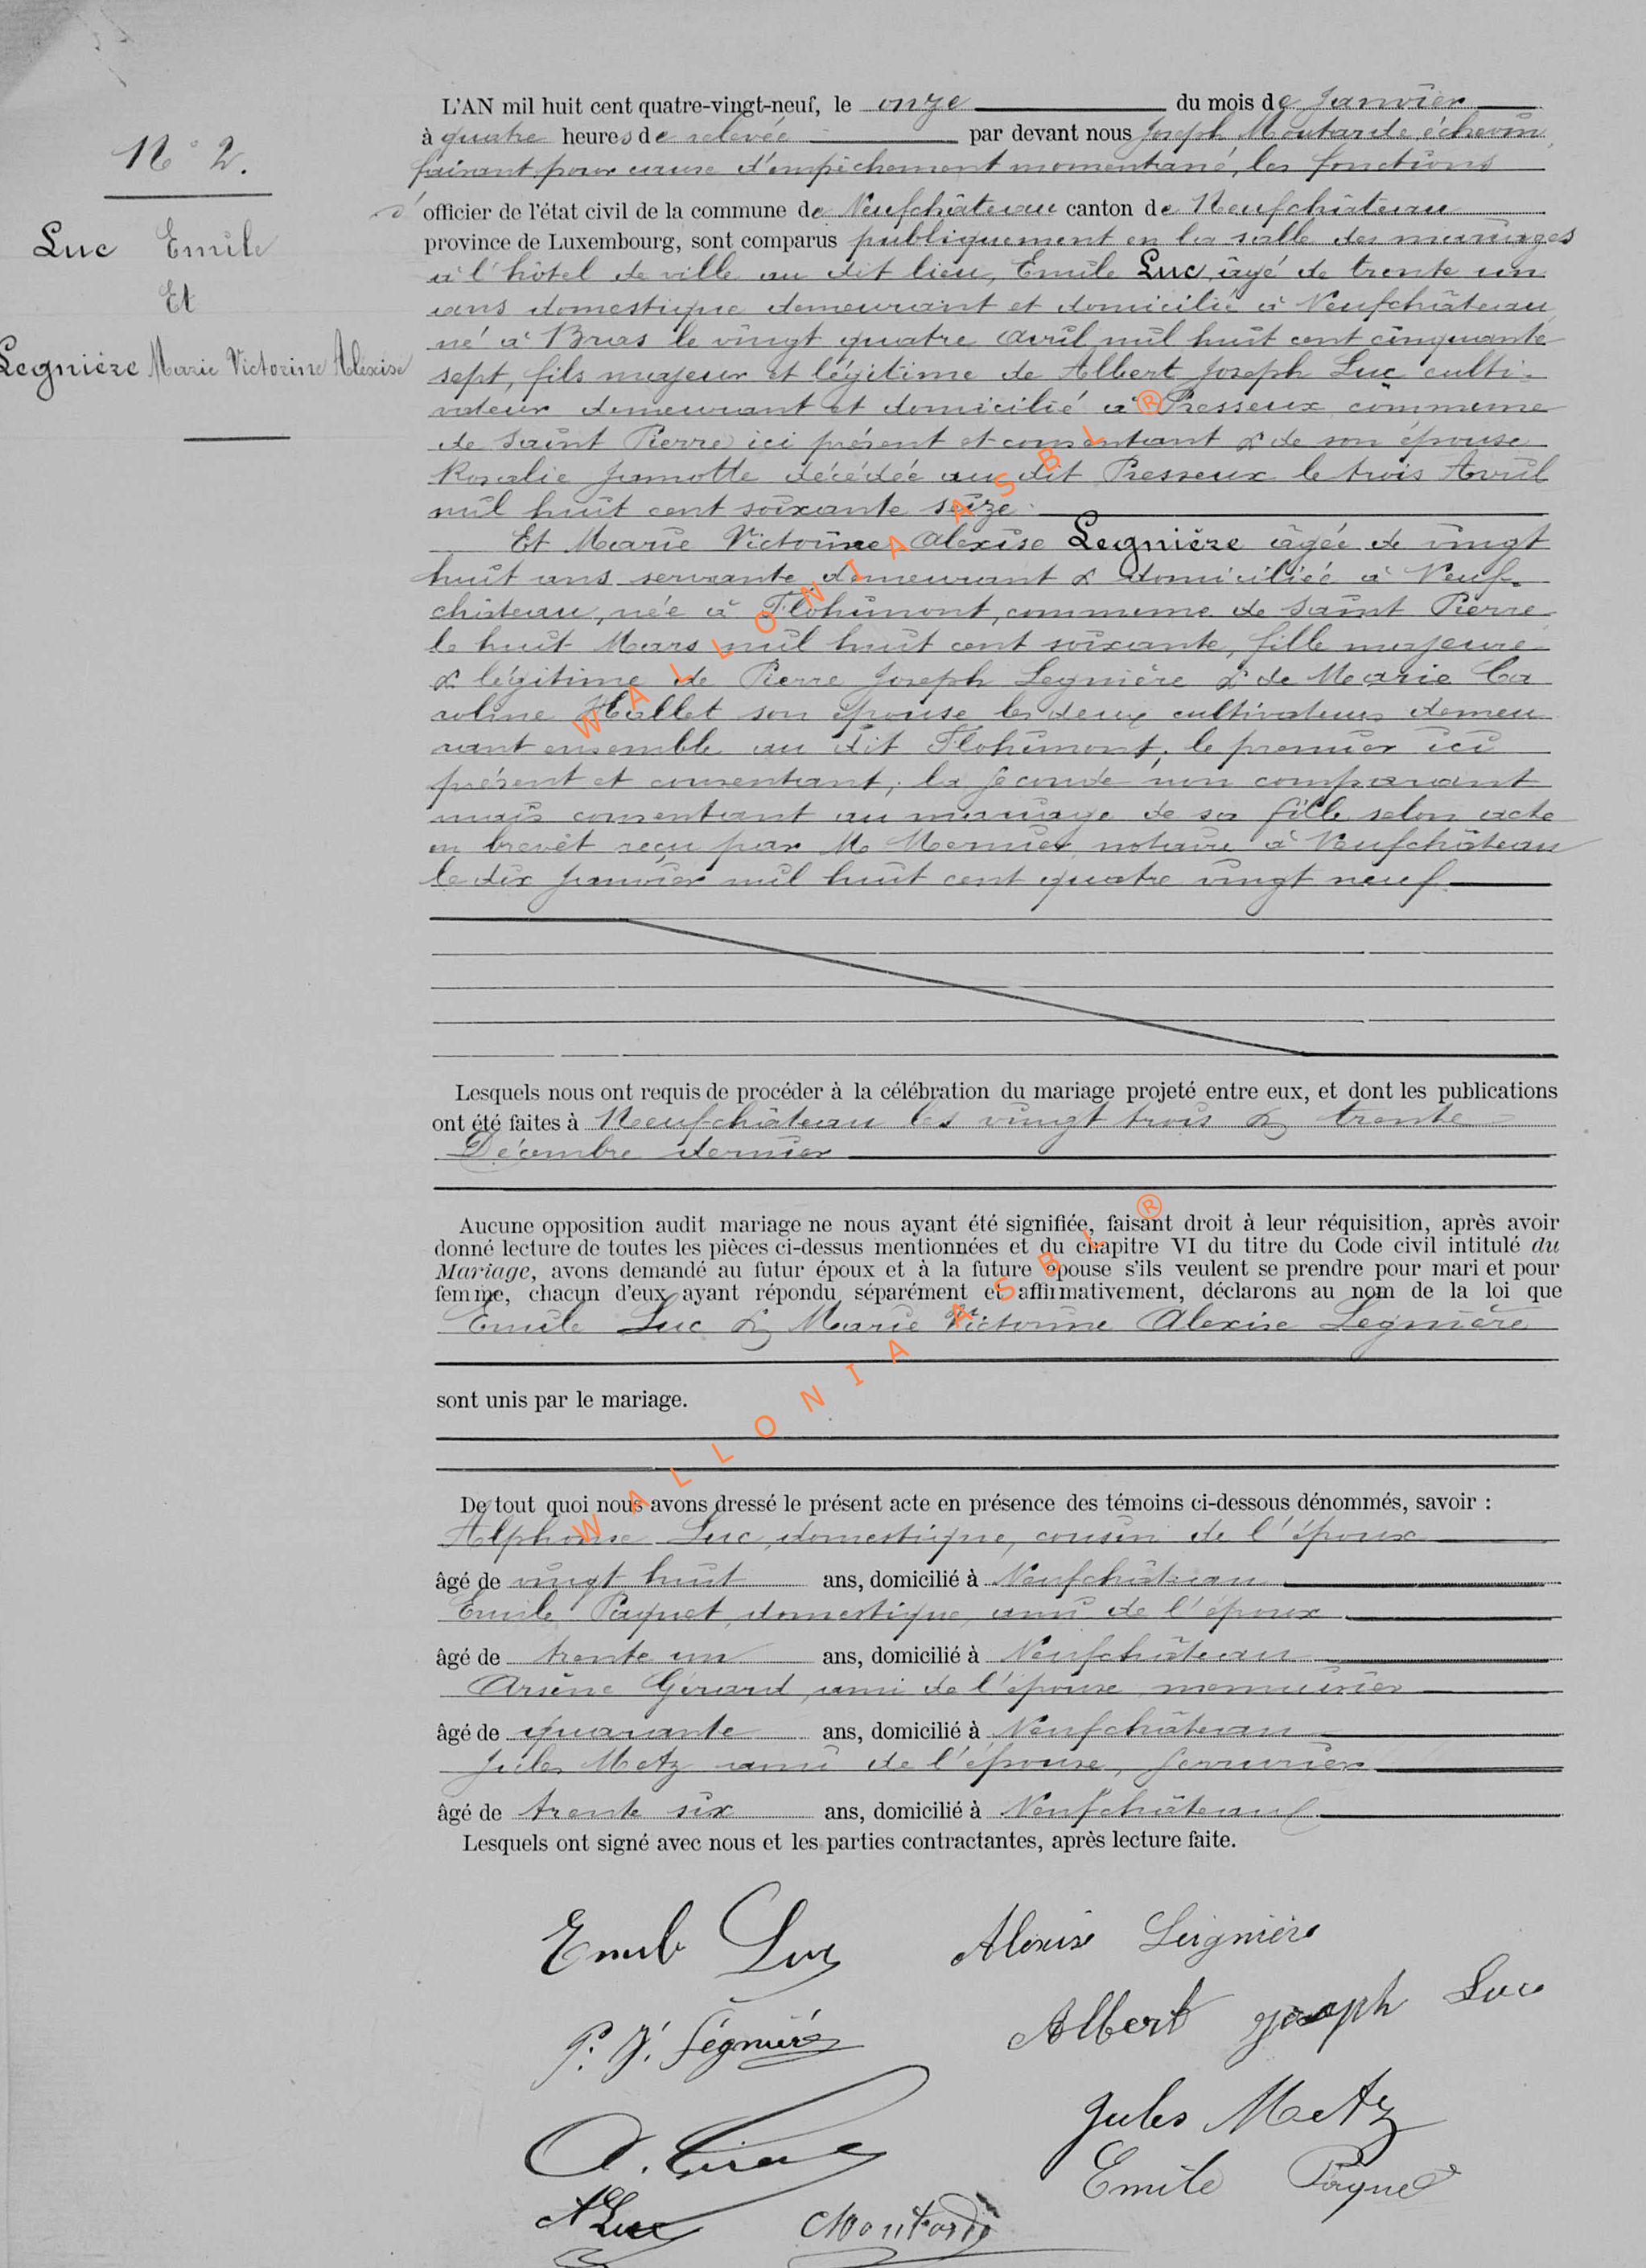 N° 2.
Luc Emile
Et
Legnière Marie Victorine Aléxise
L'AN mil huit cent quatre-vingt-neuf, le onze du mois de Janvier
à quatre heures de relevée par devant nous Joseph Moutarde, échevin,
faisant pour cause d'empêchement momentané, les fonctions
d'officier de l'état civil de la commune de Neufchâteau canton de Neufchâteau
province de Luxembourg, sont comparus publiquement en la salle des mariages
à l'hôtel de ville au dit lieu, Emile Luc, âgé de trente un
ans domestique demeurant et domicilié à Neufchâteau
né à Bras le vingt quatre avril mil huit cent cinquante
sept, fils majeur et légitime de Albert Joseph Luc culti-
vateur demeurant et domicilié à Presseux commune
de Saint Pierre ici présent et consentant & de son épouse
Rosalie Jamotte décédée au dit Presseux le trois Avril
mil huit cent soixante seize.
Et Marie Victorine Alexise Legnière âgée de vingt
huit ans servante, demeurant & domiciliée à Neuf-
château, née à Flohimont, commune de Saint Pierre
le huit Mars mil huit cent soixante, fille majeure
& légitime de Pierre Joseph Legnière & de Marie Ca
roline Hallet son épouse les deux cultivateurs demeu
rant ensemble au dit Flohimont, le premier ici
présent et consentant, la seconde non comparant
mais consentant au mariage de sa fille selon acte
en brevet reçu par Me notaire à Neufchâteau
le dix janvier mil huit cent quatre vingt neuf
Lesquels nous ont requis de procéder à la célébration du mariage projeté entre eux, et dont les publications
ont été faites à Neufchâteau les vingt trois & trente
Décembre dernier
Aucune opposition audit mariage ne nous ayant été signifiée, faisant droit à leur réquisition, après avoir
donné lecture de toutes les pièces ci-dessus mentionnées et du chapitre VI du titre du Code civil intitulé du
Mariage, avons demandé au futur époux et à la future épouse s'ils veulent se prendre pour mari et pour
femme, chacun d'eux ayant répondu séparément et affirmativement, déclarons au nom de la loi que
Emile Luc & Marie Victorine Alexise Legnière
sont unis par le mariage.
De tout quoi nous avons dressé le présent acte en présence des témoins ci-dessous dénommés, savoir :
Alphonse Luc, domestique, cousin de l'époux
âgé de vingt huit ans, domicilié à Neufchâteau
Emile Paquet, domestique, ami de l'époux
âgé de trente un ans, domicilié à Neufchâteau
Arsène Gérard, ami de l'épouse, menuisier
âgé de quarante ans, domicilié à Neufchâteau
Jules Metz ami de l'épouse, serrurier
âgé de trente six ans, domicilié à Neufchâteau
Lesquels ont signé avec nous et les parties contractantes, après lecture faite.
Emile Luc Alexise Leignière
P. J. Légnière Albert Joseph Luc
Jules Metz
Emile Paquet
A Luc Moutarde
WALLONIA ASBL ®
WALLONIA ASBL ®